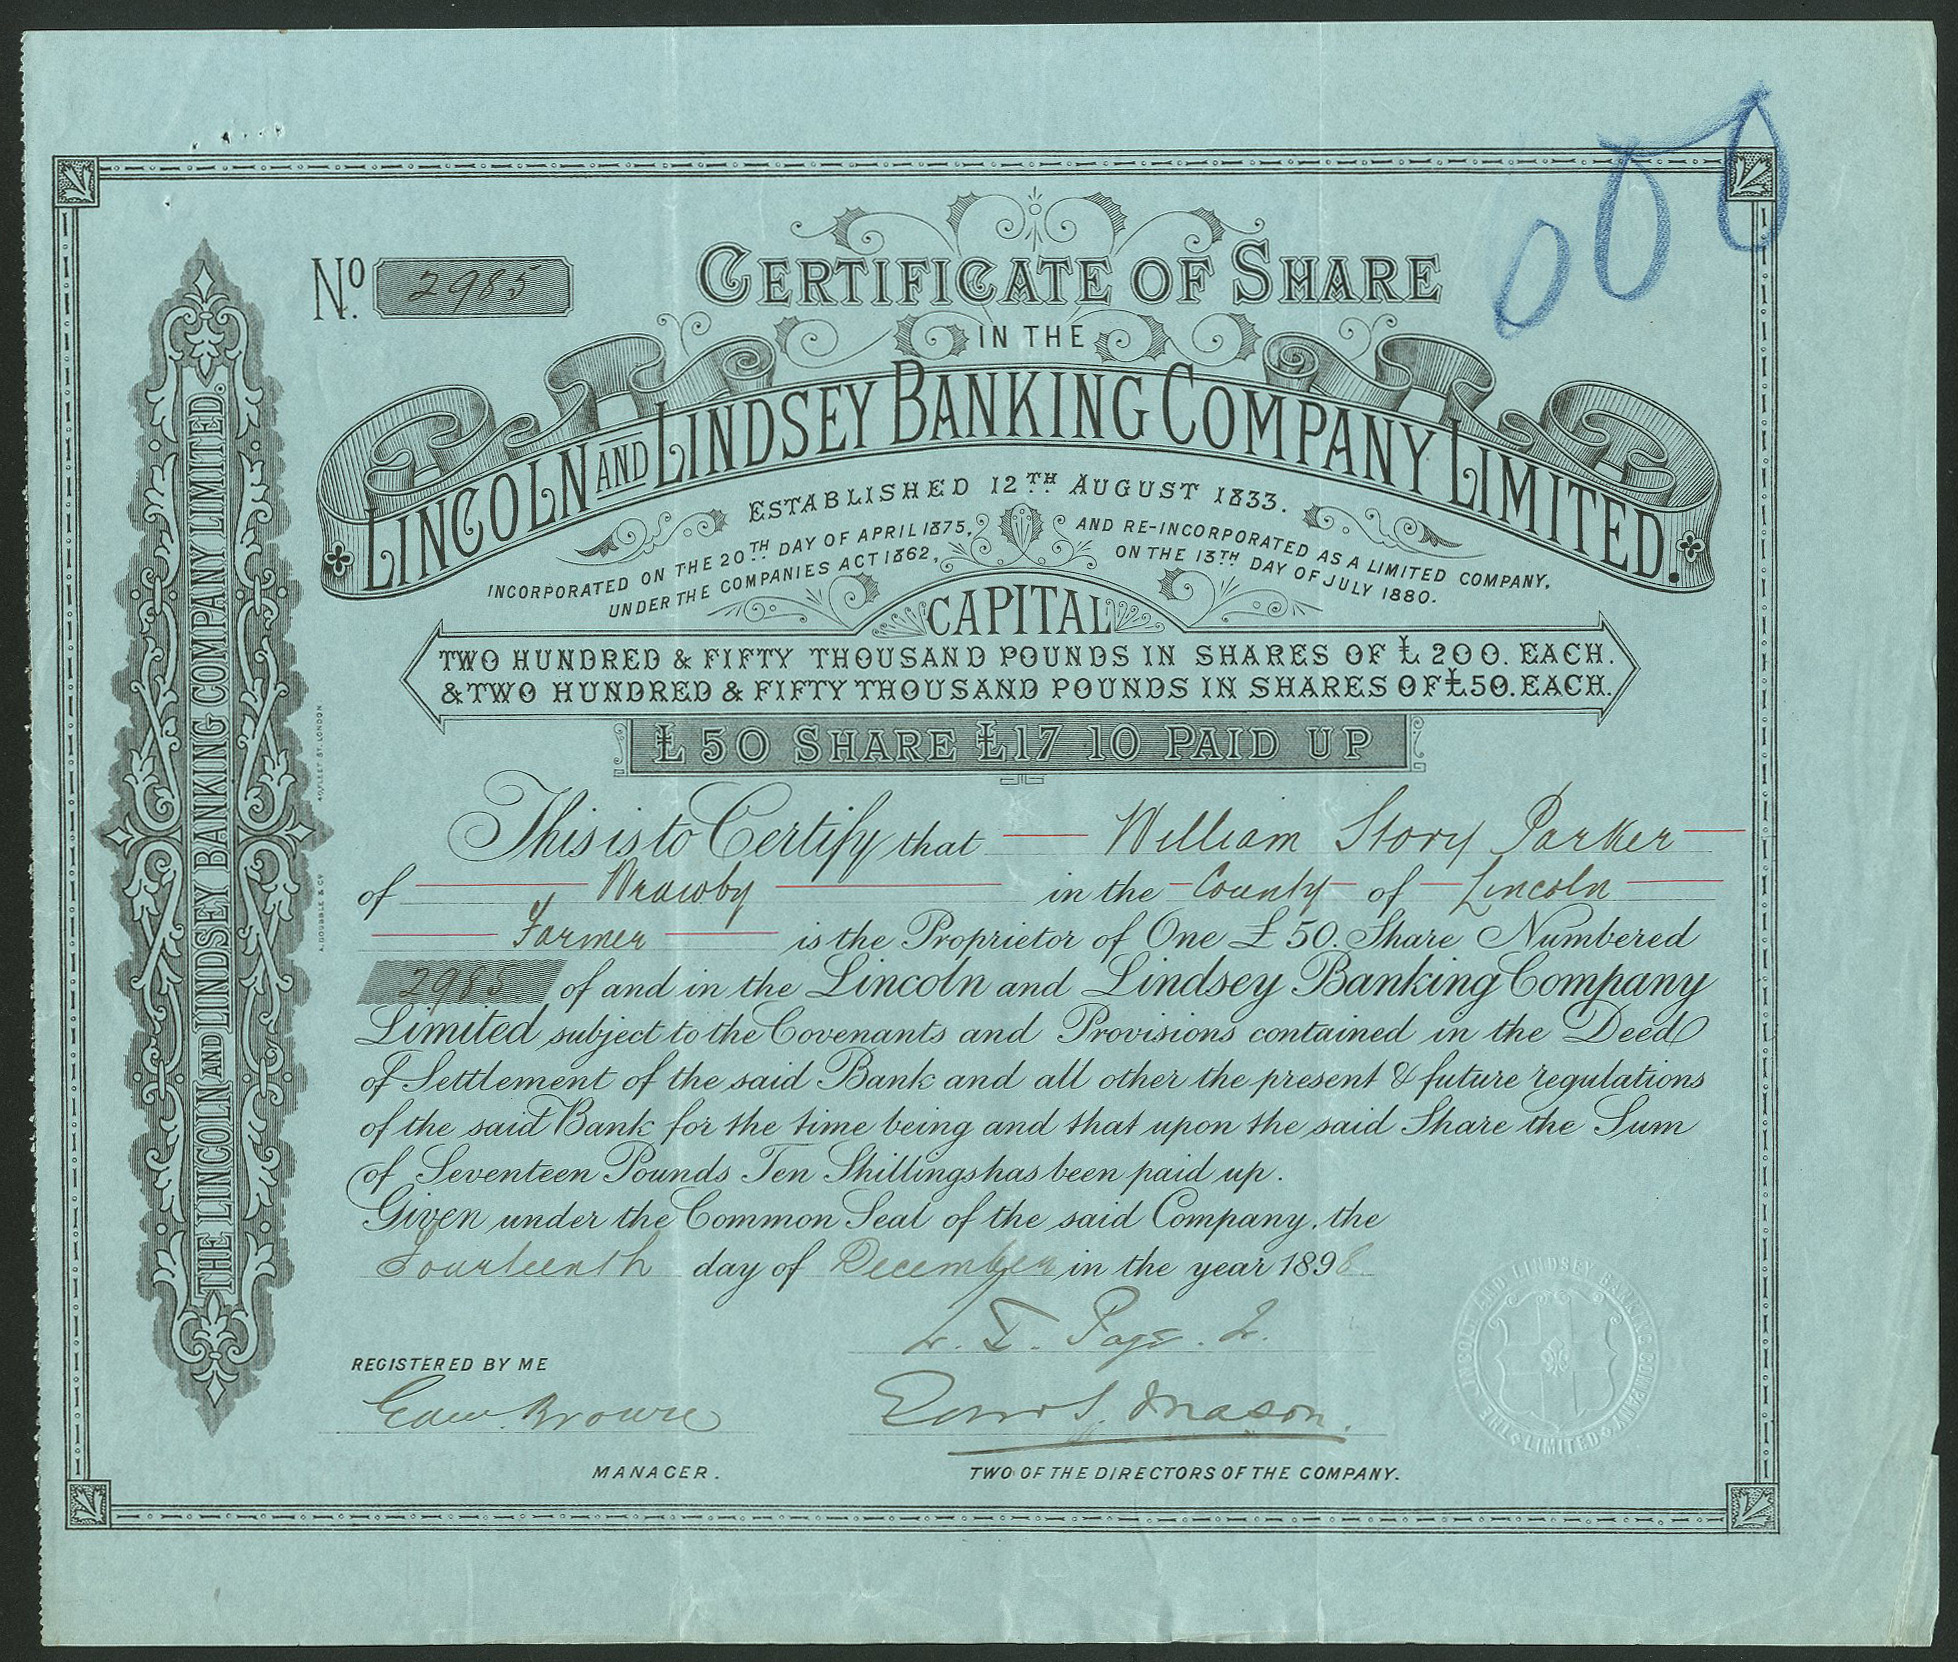 No. 2985
CERTIFICATE OF SHARE
IN THE
LINCOLN AND LINDSEY BANKING COMPANY LIMITED.
ESTABLISHED 12TH AUGUST 1833.
INCORPORATED ON THE 20TH DAY OF APRIL 1875,
UNDER THE COMPANIES ACT 1862,
AND RE-INCORPORATED AS A LIMITED COMPANY,
ON THE 13TH DAY OF JULY 1880.
CAPITAL
TWO HUNDRED & FIFTY THOUSAND POUNDS IN SHARES OF £200. EACH.
& TWO HUNDRED & FIFTY THOUSAND POUNDS IN SHARES OF £50. EACH.
£50 SHARE £17 10 PAID UP
This is to Certify that William Story Parker
of Wrawby in the County of Lincoln
Farmer is the Proprietor of One £50. Share Numbered
2985 of and in the Lincoln and Lindsey Banking Company
Limited subject to the Covenants and Provisions contained in the Deed
of Settlement of the said Bank and all other the present & future regulations
of the said Bank for the time being and that upon the said Share the Sum
of Seventeen Pounds Ten Shillings has been paid up.
Given under the Common Seal of the said Company, the
Fourteenth day of December in the year 1898
Page Jr.
REGISTERED BY ME
Edw. Browne
Mason.
MANAGER.
TWO OF THE DIRECTORS OF THE COMPANY.
THE LINCOLN AND LINDSEY BANKING COMPANY LIMITED.
A. DOUBBLE & CO 40, FLEET ST. LONDON
THE LINCOLN AND LINDSEY BANKING COMPANY LIMITED